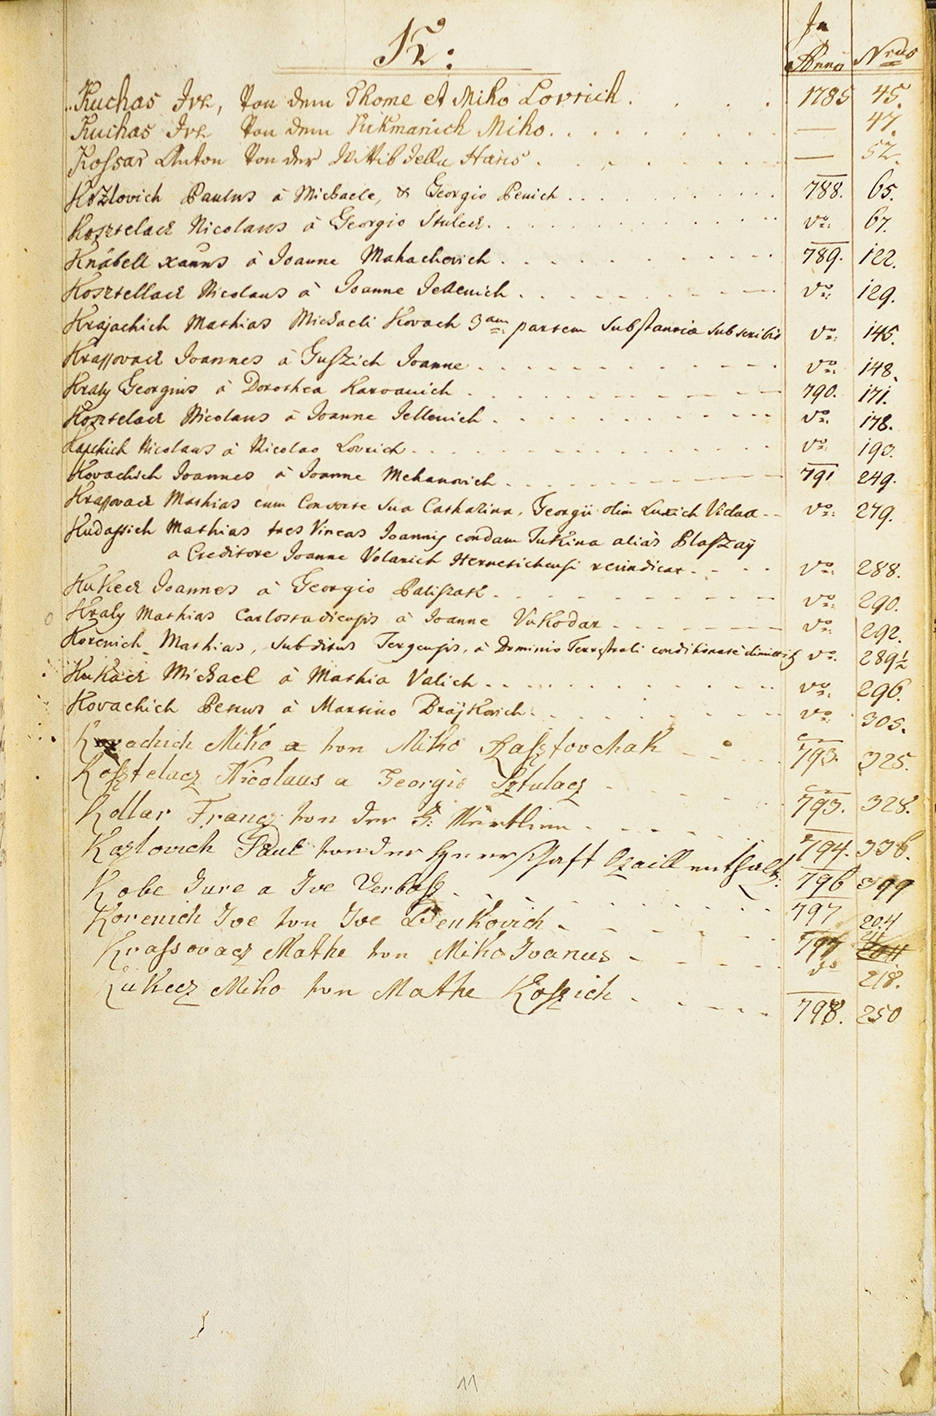 K:
In Anno Nrus
Kuchas Ive, Von dem Thome et Miko Lovrich . . . . 1785 45.
Kuchas Ive Von dem Kukmanich Miko. . . . . . . — 47.
Kossar Anton Von der Wittib Jella Hans . . . . . . — 52.
Kozlovich Paulus à Michaele, & Georgio Penich . . . 788. 65.
Kosztelacz Nicolaus à Georgio Stulecz. . . . . . vo: 67.
Knabell Xauus à Joanne Mahachovich . . . . . 789. 122.
Kosztellacz Nicolaus à Joanne Jellenich . . . . . vo: 129.
Krajachich Mathias Michaeli Kovach 3am partem Substantia Subscribit vo: 145.
Krassovacz Joannes à Guszich Joanne . . . . . . vo: 148.
Kraly Georgius à Dorothea Karvanich . . . . . 790. 171.
Kosztelacz Nicolaus à Joanne Jellenich . . . . . vo: 178.
Nicolaus à Nicolao Lovrich . . . . . . vo: 193.
Kovachich Joannes à Joanne Mehanovich . . . . . 791 249.
Krassovacz Mathias cum Consorte Sua Catharina, Georgii olim Luxich Vidua - - vo: 279.
Kudassich Mathias tres Vineas Joannis condam Jukina alias Blaszaÿ
a Creditore Joanne Volarich revindicat - - - - vo: 288.
Kukecz Joannes à Georgio Paliszak - . . . . . vo: 290.
Kraly Mathias Carlostadiensis à Joanne Vukodar . . . . vo: 292.
Korenich Mathias, Subditus Tergensis, à Dominio Terrestrali conditionate vo: 289½
Kukecz Michael à Mathia Valich . . . . . . vo: 296.
Kovachich Petrus à Martino Brajkovich . . . . . vo: 305.
Kovachich Miko a von Miko Hasztovchak - . 793. 325.
Kosztelacz Nicolaus a Georgio Sztulacz . . . 793. 328.
Kollar Franz von der F: . . . .
Kozlovich Paul von der Herrschaft 794. 338.
Kobe Jure a Ive Verbass . . . . . 796 399
Korenich Ive von Ive Benkovich . . . . 797 204
Krassovacz Mathe von Miko Ivanus - . . . 797 211
vo 218.
Kukecz Miko von Mathe Kossich . . . . 798. 250
11